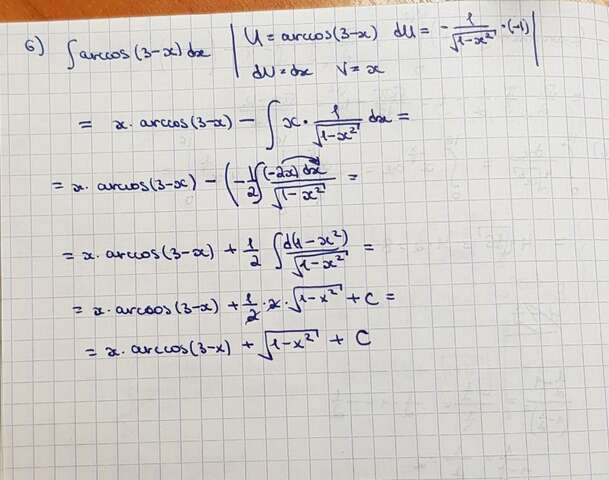 6) ∫ arccos (3-x) dx | U = arccos(3-x) dU = - 1/√(1-x²) · (-1) |
dV = dx V = x
= x · arccos(3-x) - ∫ x · 1/√(1-x²) dx =
= x · arccos(3-x) - (-1/2) ∫ (-2x) dx/√(1-x²) =
= x · arccos(3-x) + 1/2 ∫ d(1-x²)/√(1-x²) =
= x · arccos(3-x) + 1/2 · 2 · √(1-x²) + C =
= x · arccos(3-x) + √(1-x²) + C